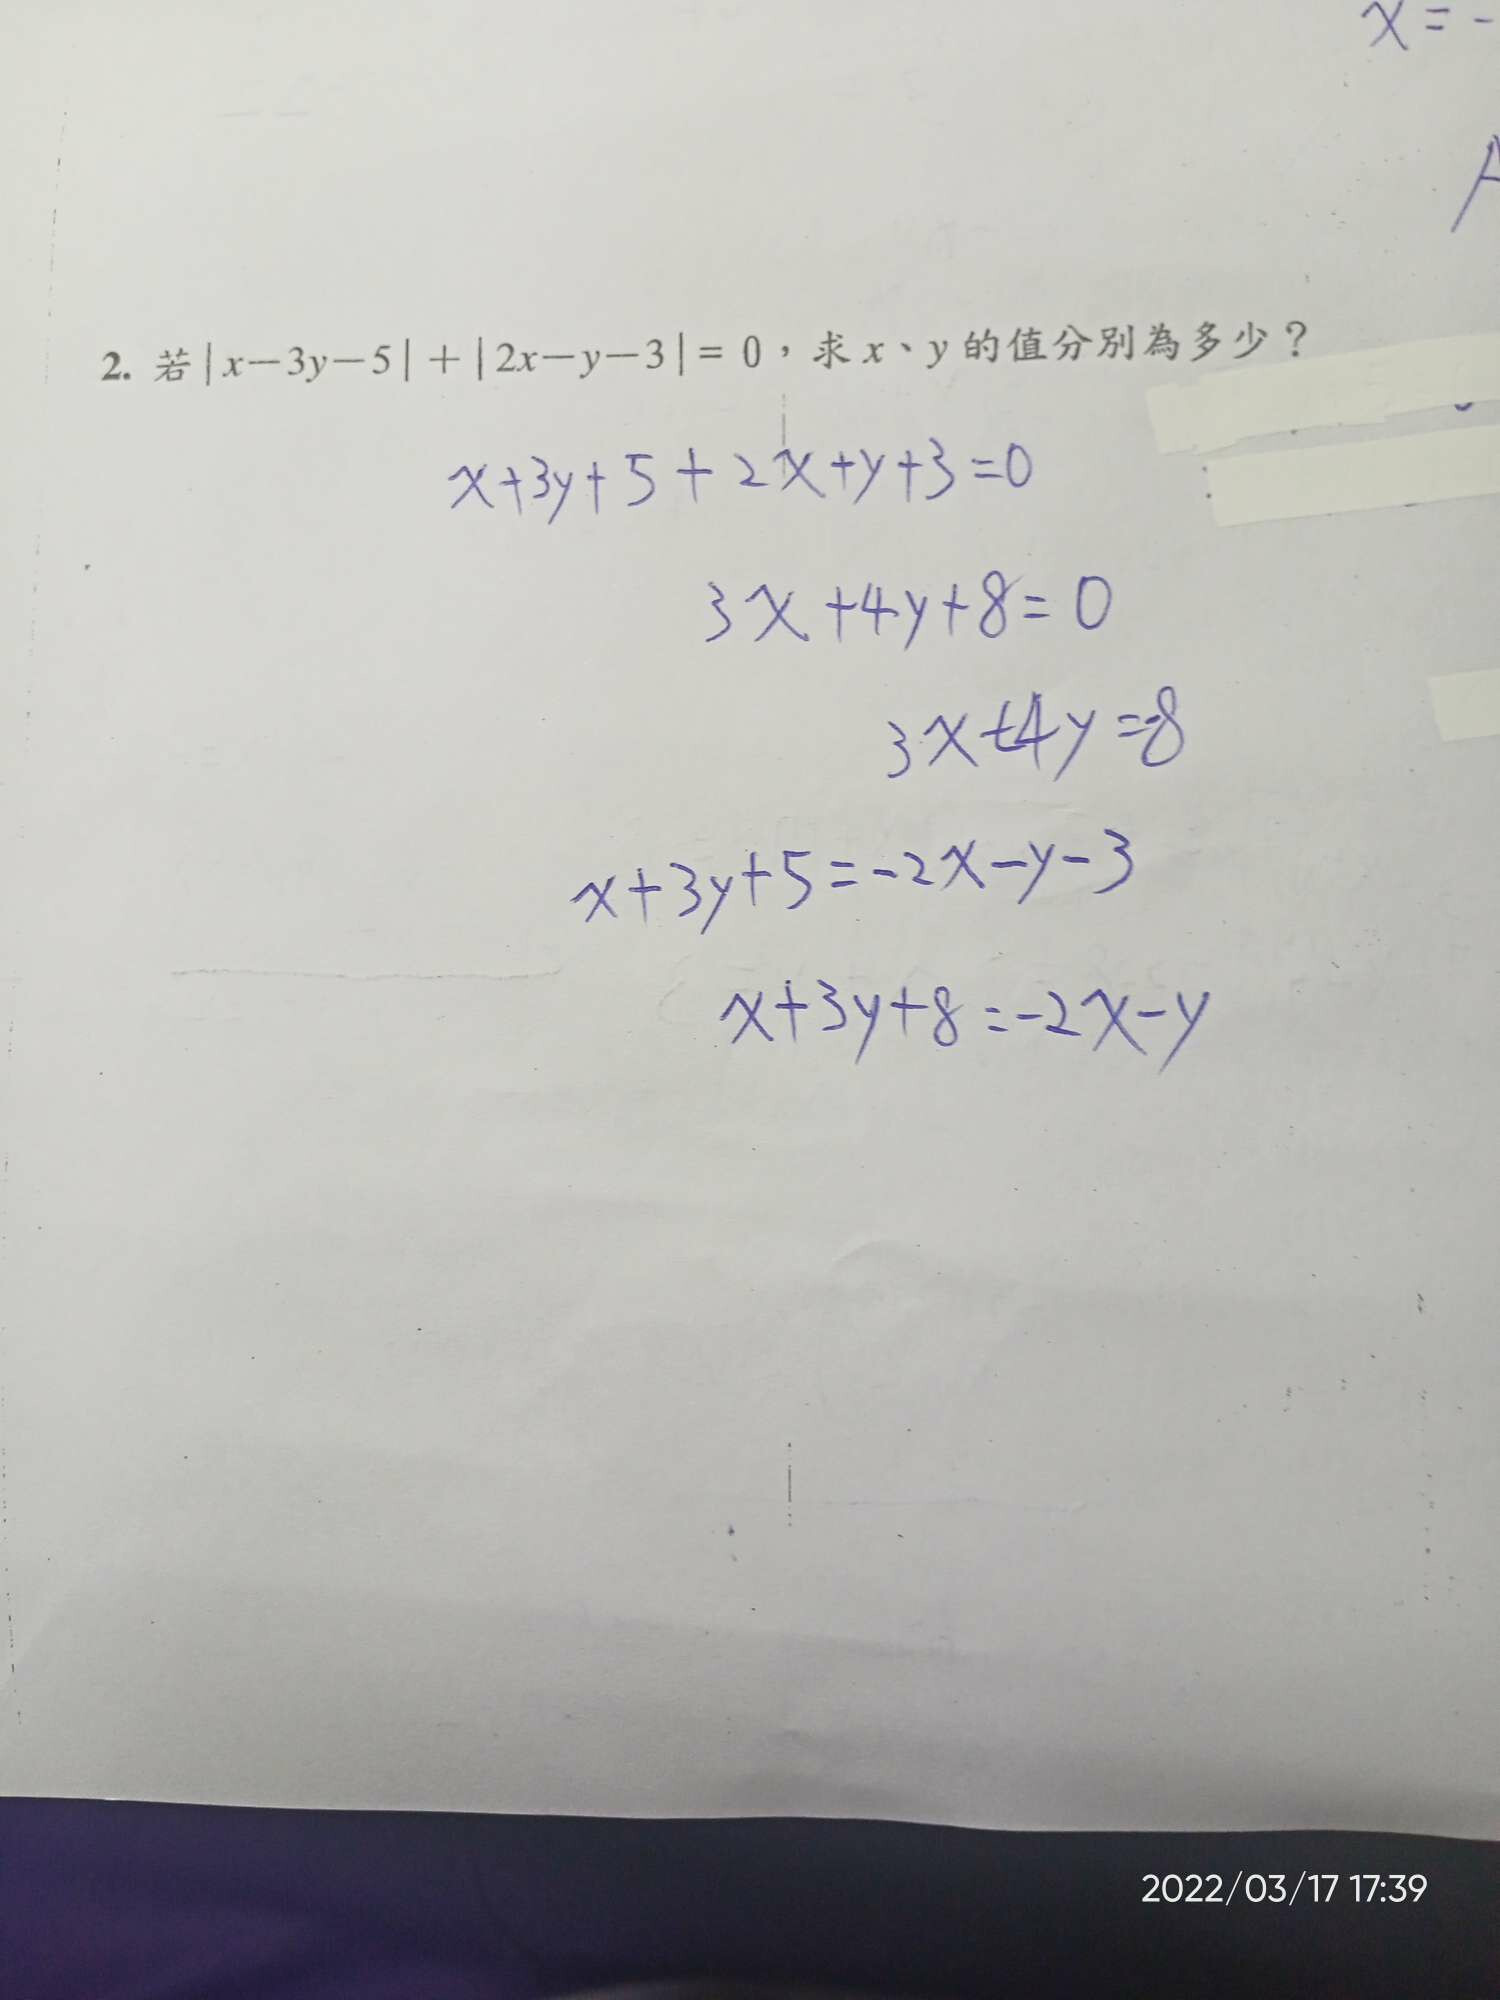 x = -
A
2. 若|x-3y-5|+|2x-y-3|= 0,求 x、y 的值分別為多少?
x+3y+5+2x+y+3=0
3x+4y+8=0
3x+4y=-8
x+3y+5=-2x-y-3
x+3y+8=-2x-y
2022/03/17 17:39